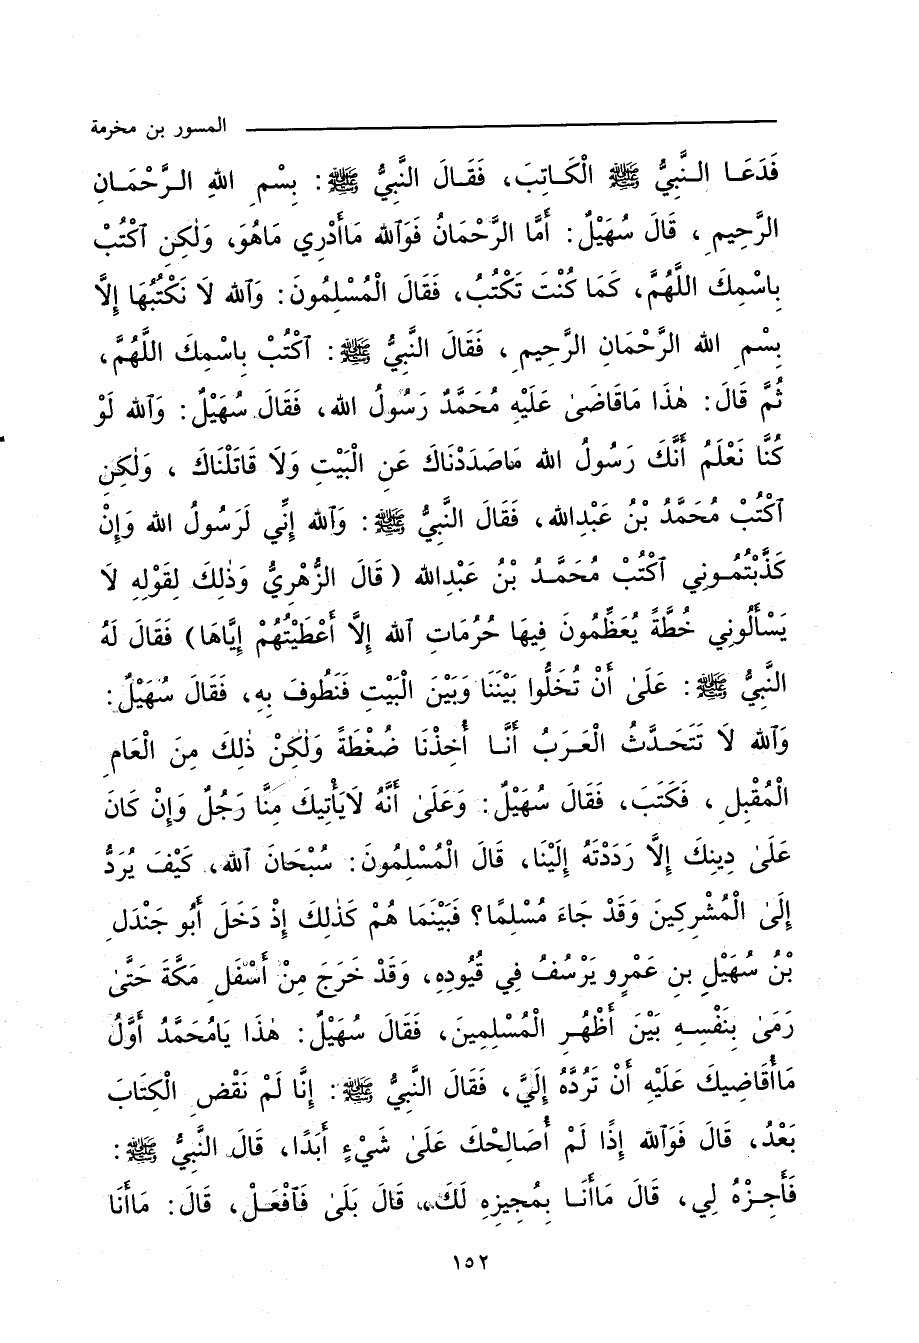 المسور بن مخرمة
فَدَعَا الـنَّبِيُّ ﷺ الْكَـاتِبَ، فَقَـالَ النَّبِيُّ ﷺ: بِسْمِ اللهِ الـرَّحْمَـانِ
الرَّحِيمِ، قَالَ سُهَيْلٌ: أَمَّا الرَّحْمَانُ فَوَاللهِ مَاأَدْرِي مَاهُوَ، وَلٰكِنِ اكْتُبْ
بِاسْمِكَ اللَّهُمَّ، كَمَا كُنْتَ تَكْتُبُ، فَقَالَ الْمُسْلِمُونَ: وَاللهِ لَا نَكْتُبُهَا إِلَّا
بِسْمِ اللهِ الرَّحْمَانِ الرَّحِيمِ، فَقَالَ النَّبِيُّ ﷺ: اكْتُبْ بِاسْمِكَ اللَّهُمَّ،
ثُمَّ قَالَ: هٰذَا مَاقَاضَىٰ عَلَيْهِ مُحَمَّدٌ رَسُولُ اللهِ، فَقَالَ سُهَيْلٌ: وَاللهِ لَوْ
كُنَّا نَعْلَمُ أَنَّكَ رَسُولُ اللهِ مَاصَدَدْنَاكَ عَنِ الْبَيْتِ وَلَا قَاتَلْنَاكَ، وَلٰكِنِ
اكْتُبْ مُحَمَّدُ بْنُ عَبْدِاللهِ، فَقَالَ النَّبِيُّ ﷺ: وَاللهِ إِنِّي لَرَسُولُ اللهِ وَإِنْ
كَذَّبْتُمُونِي اكْتُبْ مُحَمَّدُ بْنُ عَبْدِاللهِ (قَالَ الزُّهْرِيُّ وَذٰلِكَ لِقَوْلِهِ لَا
يَسْأَلُونِي خُطَّةً يُعَظِّمُونَ فِيهَا حُرُمَاتِ اللهِ إِلَّا أَعْطَيْتُهُمْ إِيَّاهَا) فَقَالَ لَهُ
النَّبِيُّ ﷺ: عَلَىٰ أَنْ تُخَلُّوا بَيْنَنَا وَبَيْنَ الْبَيْتِ فَنَطُوفَ بِهِ، فَقَالَ سُهَيْلٌ:
وَاللهِ لَا تَتَحَدَّثُ الْعَرَبُ أَنَّـا أُخِذْنَا ضُغْطَةً وَلٰكِنْ ذٰلِكَ مِنَ الْعَامِ
الْمُقْبِلِ، فَكَتَبَ، فَقَالَ سُهَيْلٌ: وَعَلَىٰ أَنَّهُ لَايَأْتِيكَ مِنَّا رَجُلٌ وَإِنْ كَانَ
عَلَىٰ دِينِكَ إِلَّا رَدَدْتَهُ إِلَيْنَا، قَالَ الْمُسْلِمُونَ: سُبْحَانَ اللهِ، كَيْفَ يُرَدُّ
إِلَىٰ الْمُشْرِكِينَ وَقَدْ جَاءَ مُسْلِمًا؟ فَبَيْنَمَا هُمْ كَذٰلِكَ إِذْ دَخَلَ أَبُو جَنْدَلِ
بْنُ سُهَيْلِ بنِ عَمْرٍو يَرْسُفُ فِي قُيُودِهِ، وَقَدْ خَرَجَ مِنْ أَسْفَلِ مَكَّةَ حَتَّىٰ
رَمَىٰ بِنَفْسِـهِ بَيْنَ أَظْهُـرِ الْمُسْلِمِينَ، فَقَالَ سُهَيْلٌ: هٰذَا يَامُحَمَّدُ أَوَّلُ
مَاأُقَاضِيكَ عَلَيْهِ أَنْ تَرُدَّهُ إِلَيَّ، فَقَالَ النَّبِيُّ ﷺ: إِنَّا لَمْ نَقْضِ الْكِتَابَ
بَعْدُ، قَالَ فَوَاللهِ إِذًا لَمْ أُصَالِحْكَ عَلَىٰ شَيْءٍ أَبَدًا، قَالَ النَّبِيُّ ﷺ:
فَأَجِـزْهُ لِي، قَالَ مَاأَنَـا بِمُجِيزِهِ لَكَ، قَالَ بَلَىٰ فَافْعَـلْ، قَالَ: مَاأَنَا
١٥٢